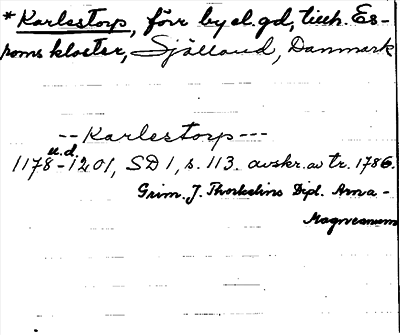 *Karlestorp, förr by el. gd, tillh. Es-
roms kloster, Sjölland, Danmark
--Karlestorp---
u.d.
1178-1201, SD 1, s. 113. avskr. av tr. 1786.
Grim. J. Thorkelins Dipl. Arna-
Magneanum